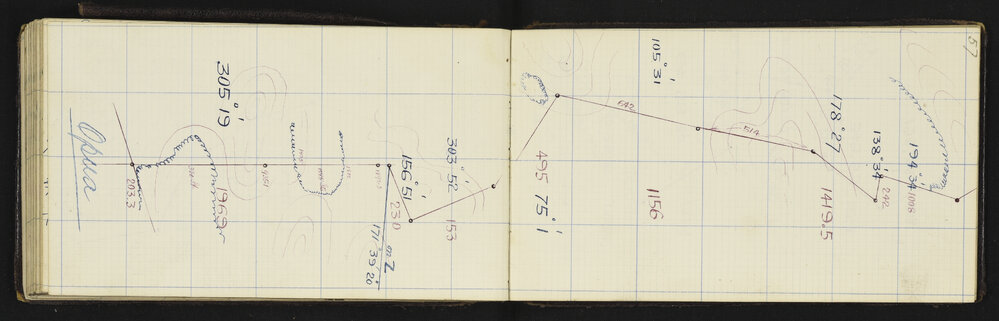 57
Opua
203.3
305° 19'
1969
303° 52'
153
156° 51'
230
on Z
171° 39' 20
495
75° 1'
105° 31'
1156
642
514
178° 27'
1419.5
138° 34'
242
194 34
1098